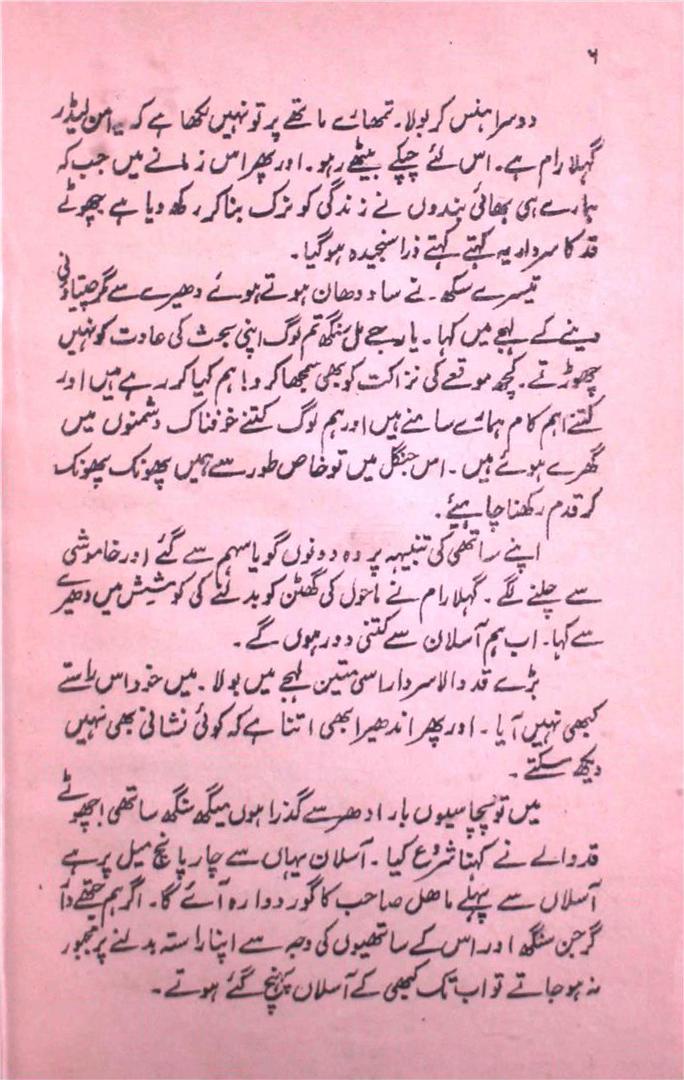 ۶
دوسرا ہنس کر بولا۔ تمھارے ماتھے پر تو نہیں لکھا ہے کہ یہ امن لیڈر
گہلا رام ہے۔ اس لئے چپکے بیٹھے رہو۔ اور پھر اس زمانے میں جب کہ
ہمارے ہی بھائی بندوں نے زندگی کو نرک بنا کر رکھ دیا ہے چھوٹے
قد کا سردار یہ کہتے کہتے ذرا سنجیدہ ہو گیا۔
تیسرے سکھ۔ نے ساودھان ہوتے ہوئے دھیرے سے مگر چیتاؤنی
دینے کے لہجے میں کہا۔ یار جے مل سنگھ تم لوگ اپنی بحث کی عادت کو نہیں
چھوڑتے۔ کچھ موقعے کی نزاکت کو بھی سمجھا کرو! ہم کیا کر رہے ہیں اور
کتنے اہم کام ہمارے سامنے ہیں اور ہم لوگ کتنے خوفناک دشمنوں میں
گھرے ہوئے ہیں۔ اس جنگل میں تو خاص طور سے ہمیں پھونک پھونک
کر قدم رکھنا چاہیئے۔
اپنے ساتھی کی تنبیہہ پر وہ دونوں گویا سہم سے گئے اور خاموشی
سے چلنے لگے۔ گہلا رام نے ماحول کی گھٹن کو بدلنے کی کوشش میں دھیرے
سے کہا۔ اب ہم آسلان سے کتنی دور ہوں گے۔
بڑے قد والا سردار اسی متین لہجے میں بولا۔ میں خود اس راستے
کبھی نہیں آیا۔ اور پھر اندھیرا بھی اتنا ہے کہ کوئی نشانی بھی نہیں
دیکھ سکتے۔
میں تو پچاسیوں بار ادھر سے گذرا ہوں میگھ سنگھ ساتھی! چھوٹے
قد والے نے کہنا شروع کیا۔ آسلان یہاں سے چار پانچ میل پر ہے
آسلاں سے پہلے ماھل صاحب کا گوردوارہ آئے گا۔ اگر ہم جتھے دار
گرجن سنگھ اور اس کے ساتھیوں کی وجہ سے اپنا راستہ بدلنے پر مجبور
نہ ہو جاتے تو اب تک کبھی کے آسلاں پہنچ گئے ہوتے۔